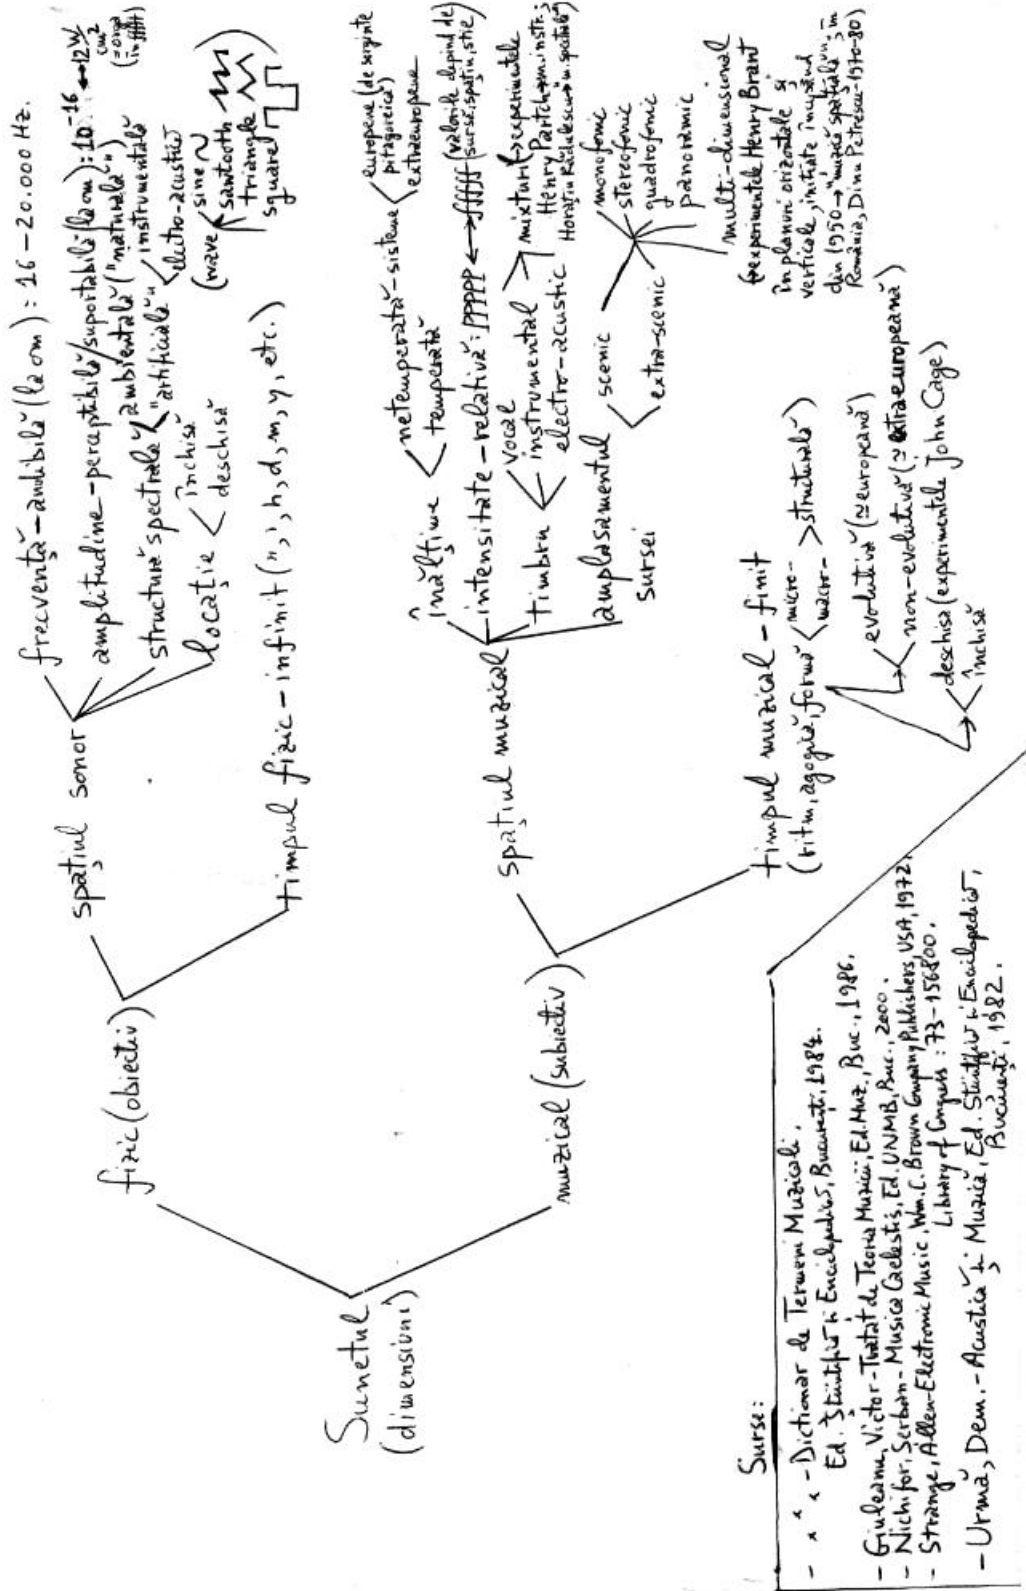 Sunetul
(dimensiuni)
fizic (obiectiv)
spațiul sonor
frecvență-audibilă (la om): 16-20.000 Hz.
amplitudine-perceptibilă/suportabilă (la om): 10⁻¹⁶ ↔ 12W/cm²
structură spectrală
ambientală ("naturală")
"artificială"
instrumentală
electro-acustică
(wave
sine ~
sawtooth
triangle
square
)
locație
închisă
deschisă
timpul fizic - infinit (", ', h, d, m, y, etc.)
muzical (subiectiv)
spațiul muzical
înălțime
netemperată-sisteme
europene (de sorginte
pitagoreică)
extraeuropene
temperată
intensitate-relativă: ppppp ↔ fffff (valorile depind de
sursă, spațiu, stil)
timbru
vocal
instrumental
electro-acustic
mixturi (→experimentele
Henry Partch→
Horațiu Rădulescu→
amplasamentul
sursei
scenic
extra-scenic
monofonic
stereofonic
quadrofonic
panoramic
multi-dimensional
(→experimentele Henry Brant
în planuri orizontale și
verticale, inițiate începând
din 1950→"muzică spațială", în
România, Dinu Petrescu-1970-80)
timpul muzical - finit
(ritm, agogică, formă
micro-
macro-
>structurală)
evolutivă (≃europeană)
non-evolutivă (≃extraeuropeană)
deschisă (experimentele John Cage)
închisă
Surse:
- * * * - Dicționar de Termeni Muzicali,
Ed. Științifică și Enciclopedică, București, 1984.
- Giuleanu, Victor-Tratat de Teoria Muzicii, Ed. Muz., Buc., 1986.
- Nichifor, Șerban-Musica Caelestis, Ed. UNMB, Buc., 2000.
- Strange, Allen-Electronic Music, Wm. C. Brown Company Publishers, USA, 1972,
Library of Congress: 73-156800.
- Urmă, Dem.-Acustică și Muzică, Ed. Științifică și Enciclopedică,
București, 1982.